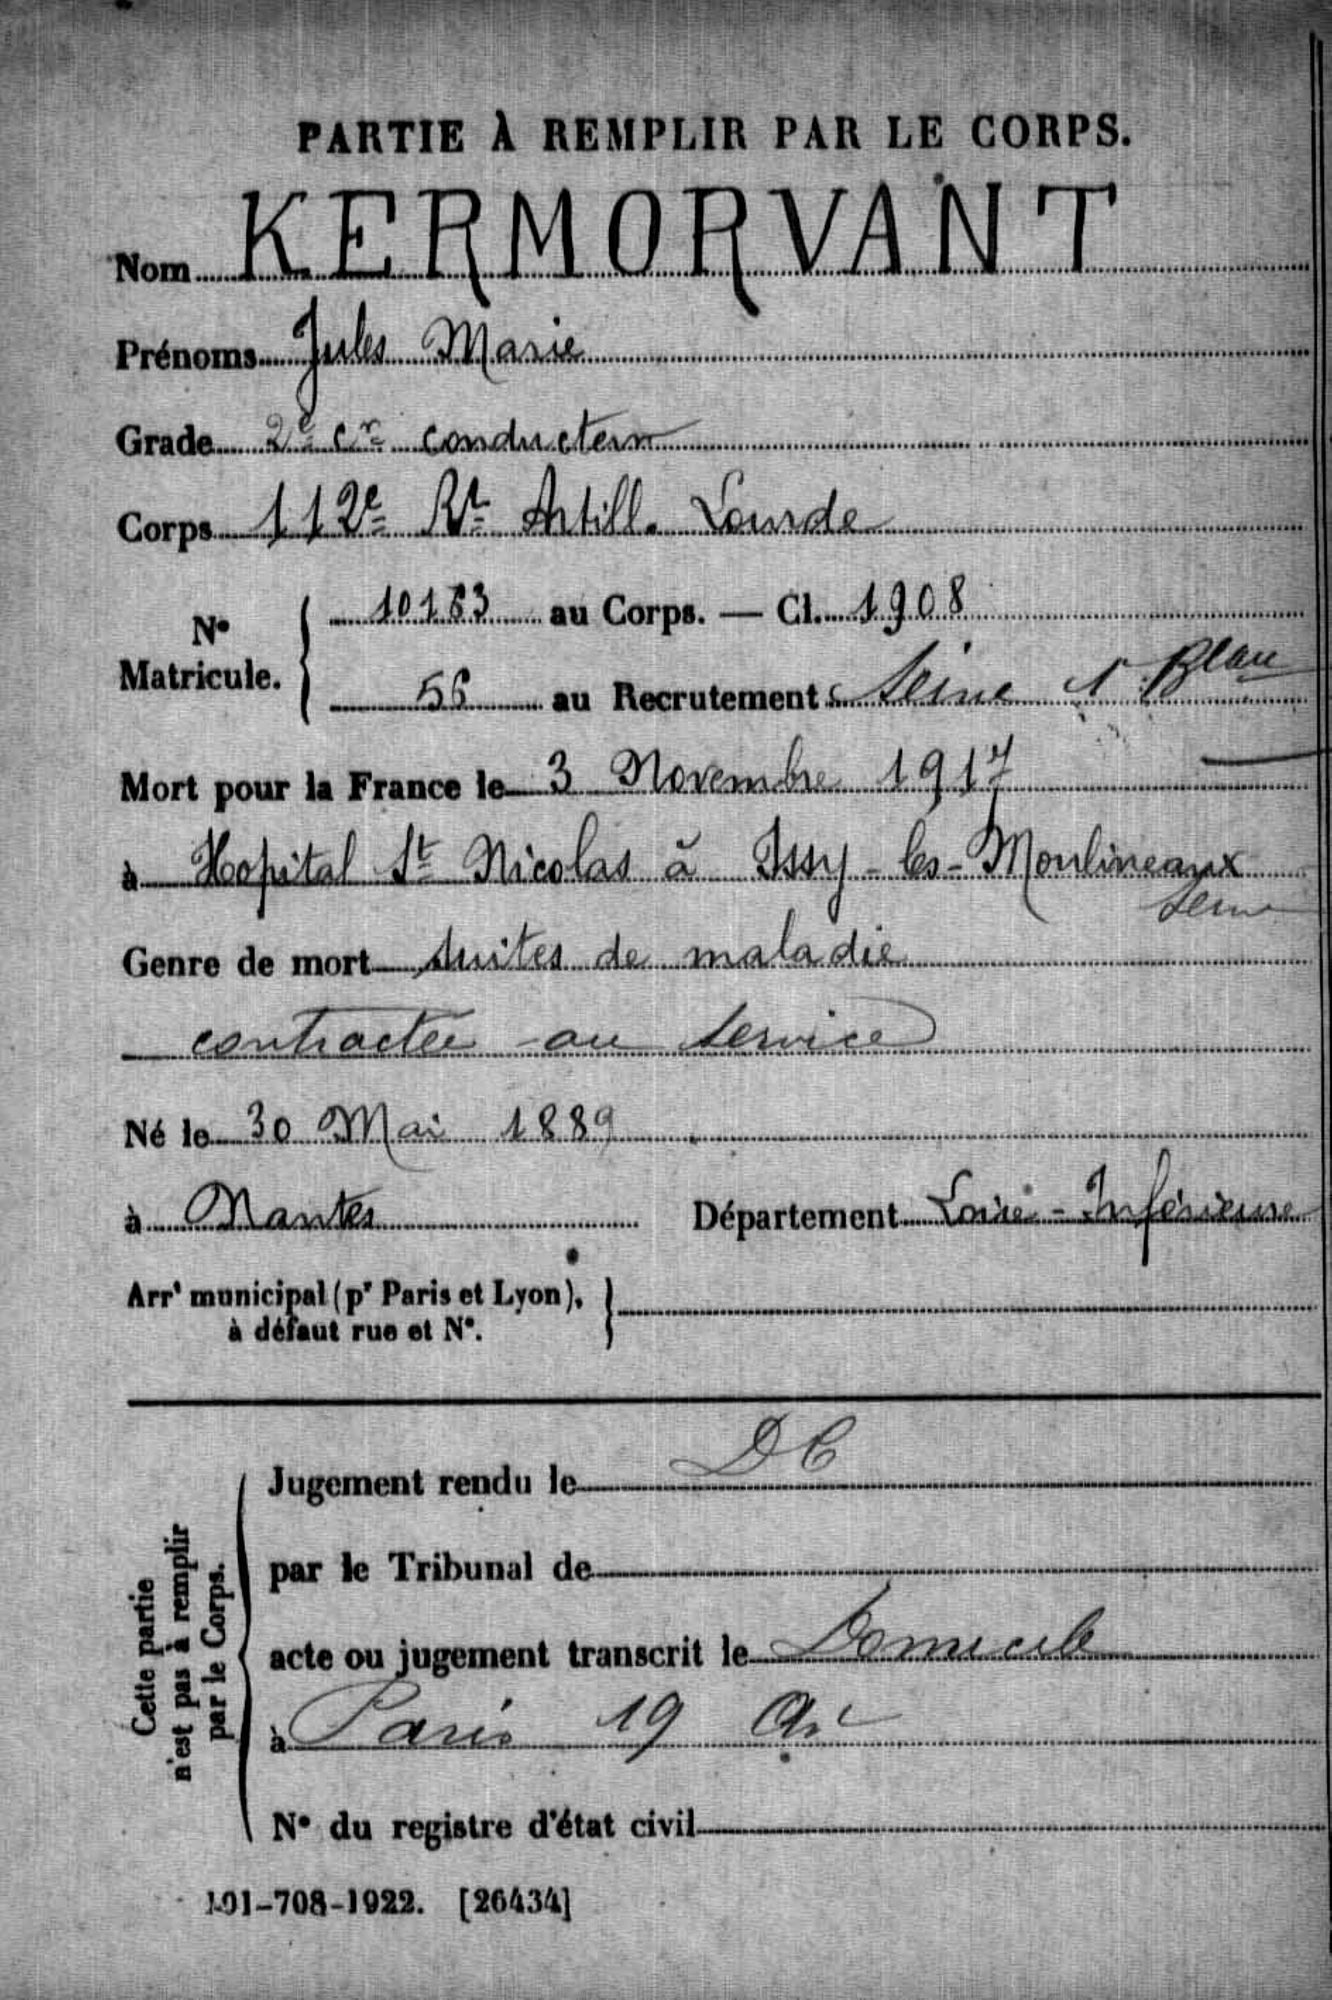 PARTIE À REMPLIR PAR LE CORPS.
Nom KERMORVANT
Prénoms Jules Marie
Grade 2e cr conducteur
Corps 112e Rt Artill. Lourde
No Matricule. 10183 au Corps. — Cl. 1908
56 au Recrutement Seine 1r Bau
Mort pour la France le 3 Novembre 1917
à Hopital St Nicolas à Issy-les-Moulineaux
Seine
Genre de mort suites de maladie
contractée au service
Né le 30 Mai 1889
à Nantes Département Loire-Inférieure
Arrt municipal (pr Paris et Lyon),
à défaut rue et No.
Cette partie
n'est pas à remplir
par le Corps.
Jugement rendu le DC
par le Tribunal de
acte ou jugement transcrit le Domicile
à Paris 19 Art
No du registre d'état civil
101-708-1922. [26434]